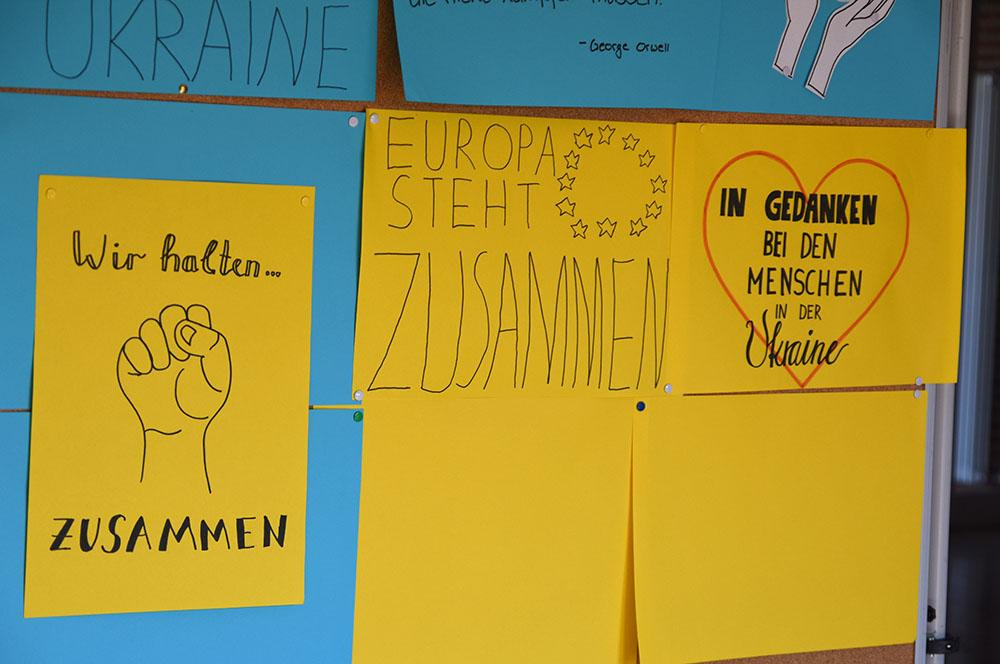 UKRAINE
- George Orwell
Wir halten...
ZUSAMMEN
EUROPA
STEHT
ZUSAMMEN
IN GEDANKEN
BEI DEN
MENSCHEN
IN DER
Ukraine